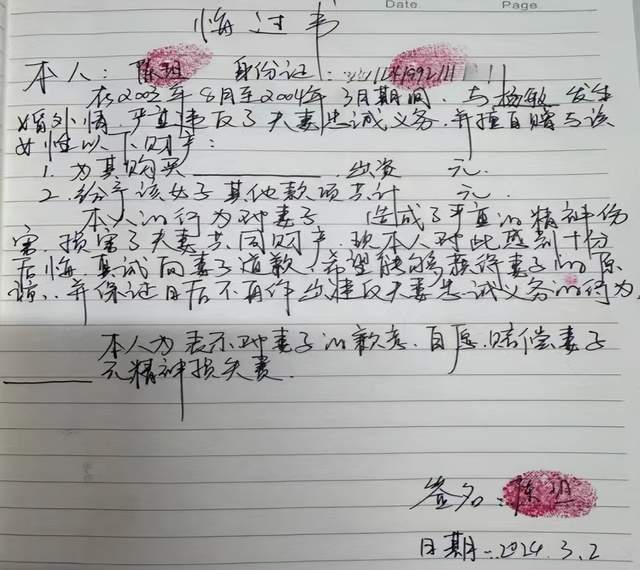 Date
Page
悔过书
本人：陈玥 身份证：
在2003年8月至2004年3月期间，与杨敏发生
婚外情，严重违反了夫妻忠诚义务，并擅自赠与该
女性以下财产：
1. 为其购买__________，出资 元.
2. 给予该女子其他款项共计 元.
本人的行为对妻子 造成了严重的精神伤
害，损害了夫妻共同财产，现本人对此感到十份
后悔，真诚向妻子道歉，希望能够获得妻子的原
谅，并保证日后不再作出违反夫妻忠诚义务的行为。
本人为表示对妻子的歉意，自愿赔偿妻子
________元精神损失费.
签名：陈玥
日期：2024.3.2